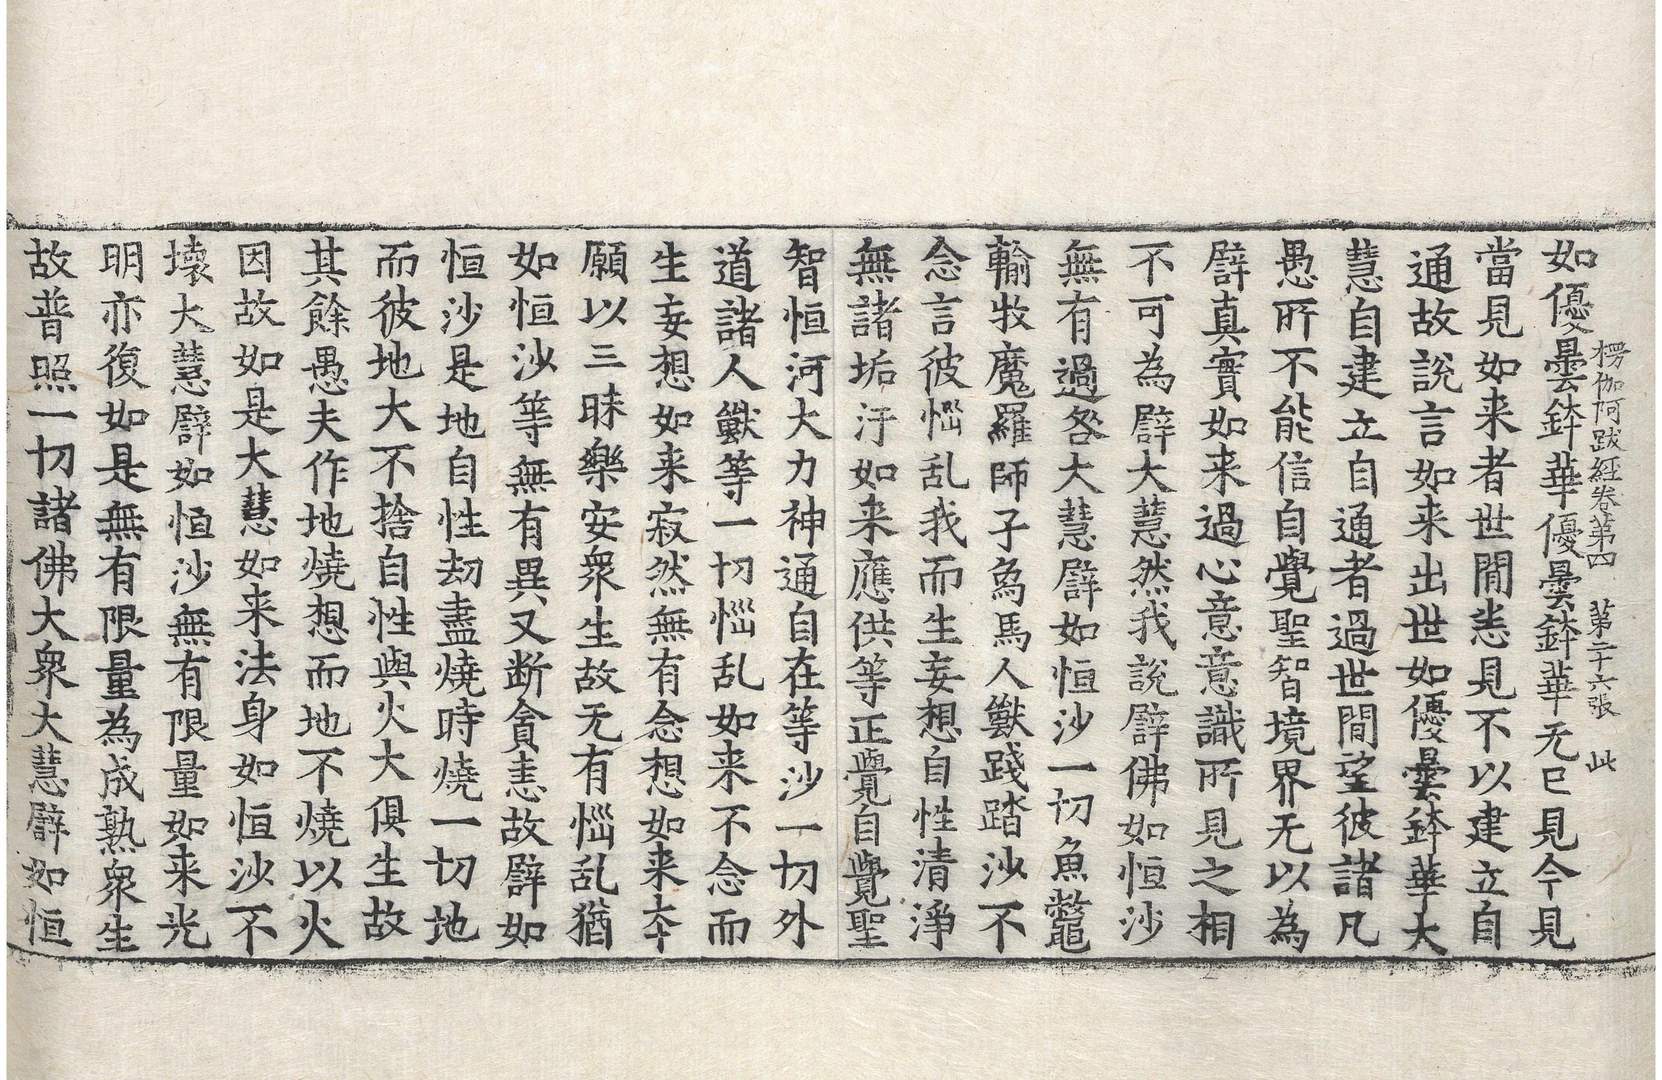 楞伽阿跋經卷第四　第二十六張　此
如優曇鉢華優曇鉢華无已見今見
當見如来者世閒悉見不以建立自
通故說言如来出世如優曇鉢華大
慧自建立自通者過世閒望彼諸凡
愚所不能信自覺聖智境界无以為
譬真實如来過心意意識所見之相
不可為譬大慧然我說譬佛如恒沙
無有過咎大慧譬如恒沙一切魚鼈
輸牧魔羅師子為馬人獸踐踏沙不
念言彼惱乱我而生妄想自性清淨
無諸垢汙如来應供等正覺自覺聖
智恒河大力神通自在等沙一切外
道諸人獸等一切惱乱如来不念而
生妄想如来寂然無有念想如来夲
願以三昧樂安衆生故无有惱乱猶
如恒沙等無有異又断貪恚故譬如
恒沙是地自性劫盡燒時燒一切地
而彼地大不捨自性與火大俱生故
其餘愚夫作地燒想而地不燒以火
因故如是大慧如来法身如恒沙不
壞大慧譬如恒沙無有限量如来光
明亦復如是無有限量為成熟衆生
故普照一切諸佛大衆大慧譬如恒